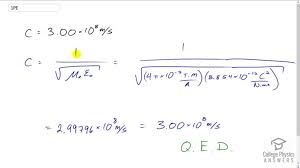 1PE
C = 3.00 × 10⁸ m/s
C = 1 / √(μ₀ ε₀) = 1 / √((4π × 10⁻⁷ T·m/A)(8.854 × 10⁻¹² C²/N·m²))
= 2.99796 × 10⁸ m/s = 3.00 × 10⁸ m/s
Q.E.D.
College Physics
ANSWERS